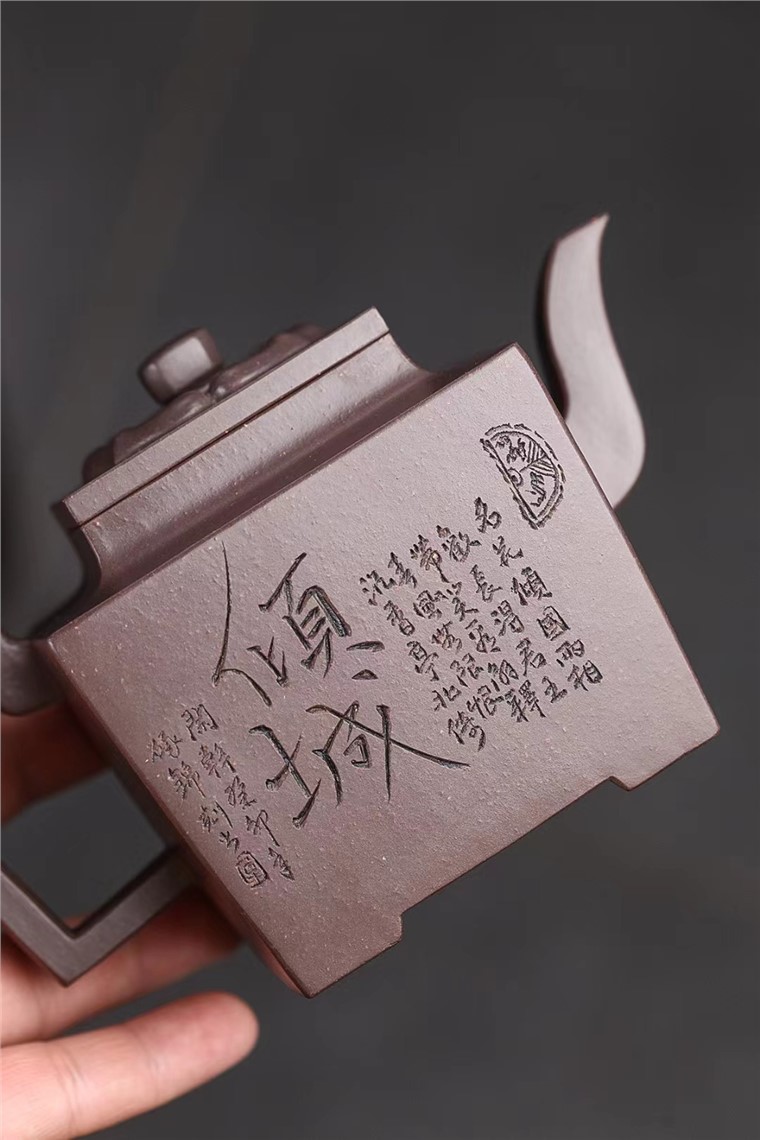 名花傾國兩相
歡長得君王
帶笑看解釋
春風無限恨
沉香亭北倚
傾城
闌幹癸卯年
錦刻